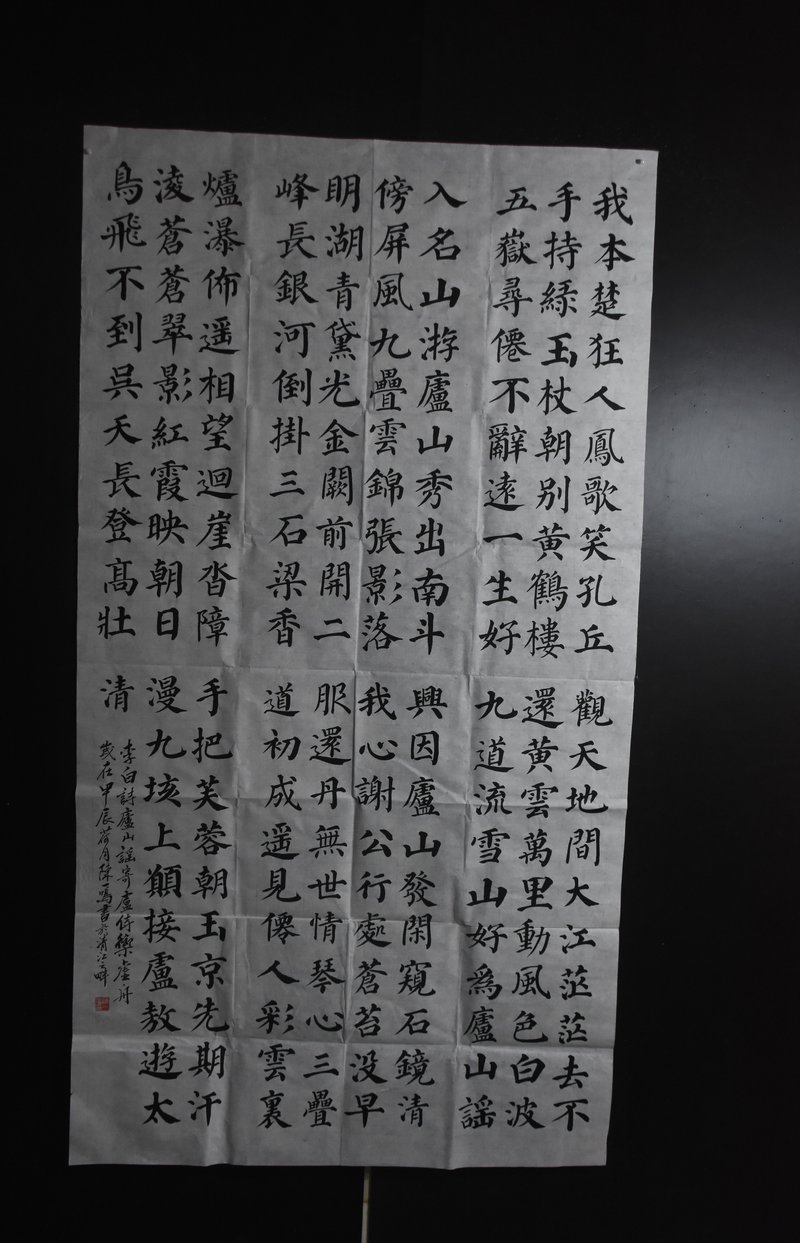 我本楚狂人鳳歌笑孔丘
手持綠玉杖朝别黄鶴樓
五嶽尋僊不辭遠一生好
入名山游廬山秀出南斗
傍屏風九疊雲錦張影落
明湖青黛光金闕前開二
峰長銀河倒掛三石梁香
爐瀑佈遥相望迴崖沓障
淩蒼蒼翠影紅霞映朝日
鳥飛不到吳天長登髙壯
觀天地間大江茫茫去不
還黄雲萬里動風色白波
九道流雪山好爲廬山謡
興因廬山發閑窺石鏡清
我心謝公行處蒼苔没早
服還丹無世情琴心三疊
道初成遥見僊人彩雲裏
手把芙蓉朝玉京先期汗
漫九垓上願接盧敖遊太
清
李白詩廬山謡寄盧侍禦虛舟
歲在甲辰荷月陳一鳴書於清江畔